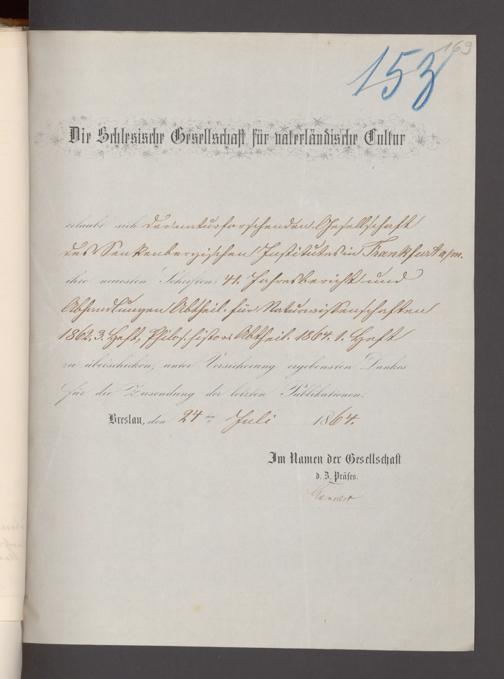 153
169
Die Schlesische Gesellschaft für vaterländische Cultur
erlaubt sich der naturforschenden Gesellschaft
des Senkenbergischen Institutes in Frankfurt a/m.
ihre neuesten Schriften: 41. Jahresbericht und
Abhandlungen Abtheil. für Naturwissenschaften
1862. 3. Heft, Philos. histor. Abtheil. 1864. 1. Heft
zu überschicken, unter Versicherung ergebensten Dankes
für die Zusendung der letzten Publikationen.
Breslau, den 24 ten Juli 1864.
Im Namen der Gesellschaft
d. Z. Präses.